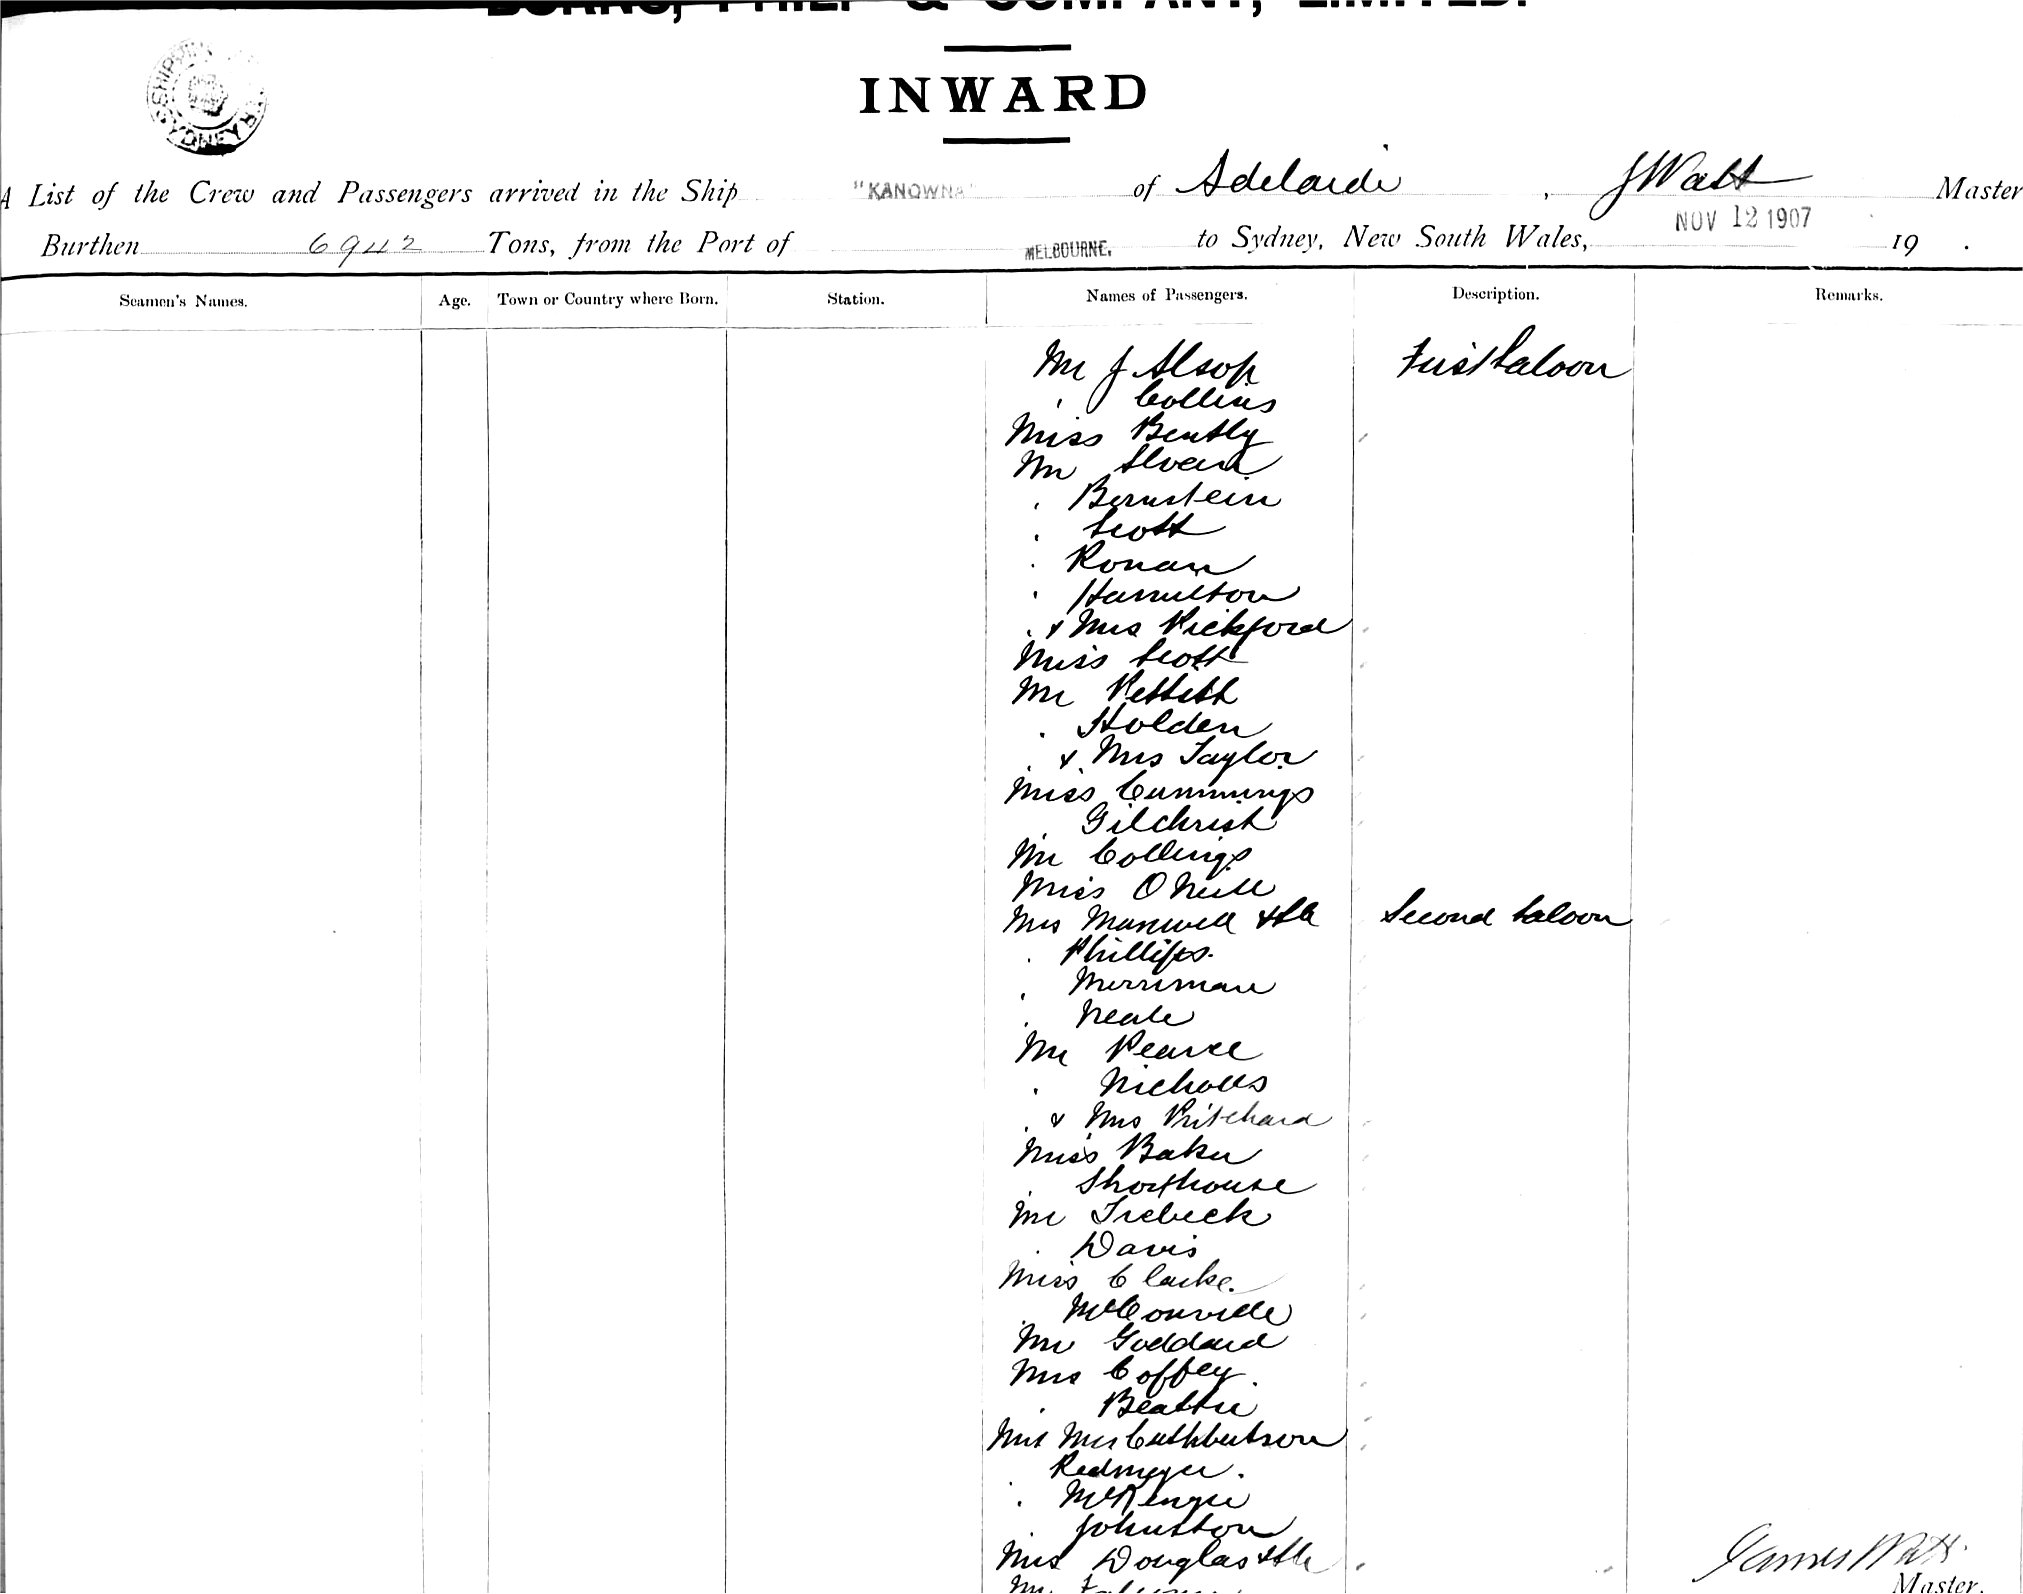 BURNS, PHILP & COMPANY, LIMITED.
INWARD
A List of the Crew and Passengers arrived in the Ship "KANOWNA" of Adelaide, J Watt Master
Burthen 6942 Tons, from the Port of MELBOURNE. to Sydney, New South Wales, NOV 12 1907 19 .
Seamen's Names. Age. Town or Country where Born. Station. Names of Passengers. Description. Remarks.
Mr J Alsop First Saloon
" Collins
Miss Bently
Mr
" Bernstein
" Scott
" Ronan
" Hamilton
" & Mrs Pickford
Miss Scott
Mr Pettitt
" Holden
" & Mrs Taylor
Miss Cummings
" Gilchrist
Mr Collings
Miss O Neill
Mrs Maxwell Second Saloon
" Phillips.
" Merriman
" Neale
Mr Pearce
" Nicholls
" & Mrs Pritchard
Miss Baker
" Shorthouse
Mr Trebeck
" Davis
Miss Clarke.
" McConville
Mr Goddard
Mrs Coffey.
" Beattie
Mr & Mrs Cuthbertson
" Redmeyer.
" McKenzie
" Johnston
Mrs Douglas
James Watt.
Master.